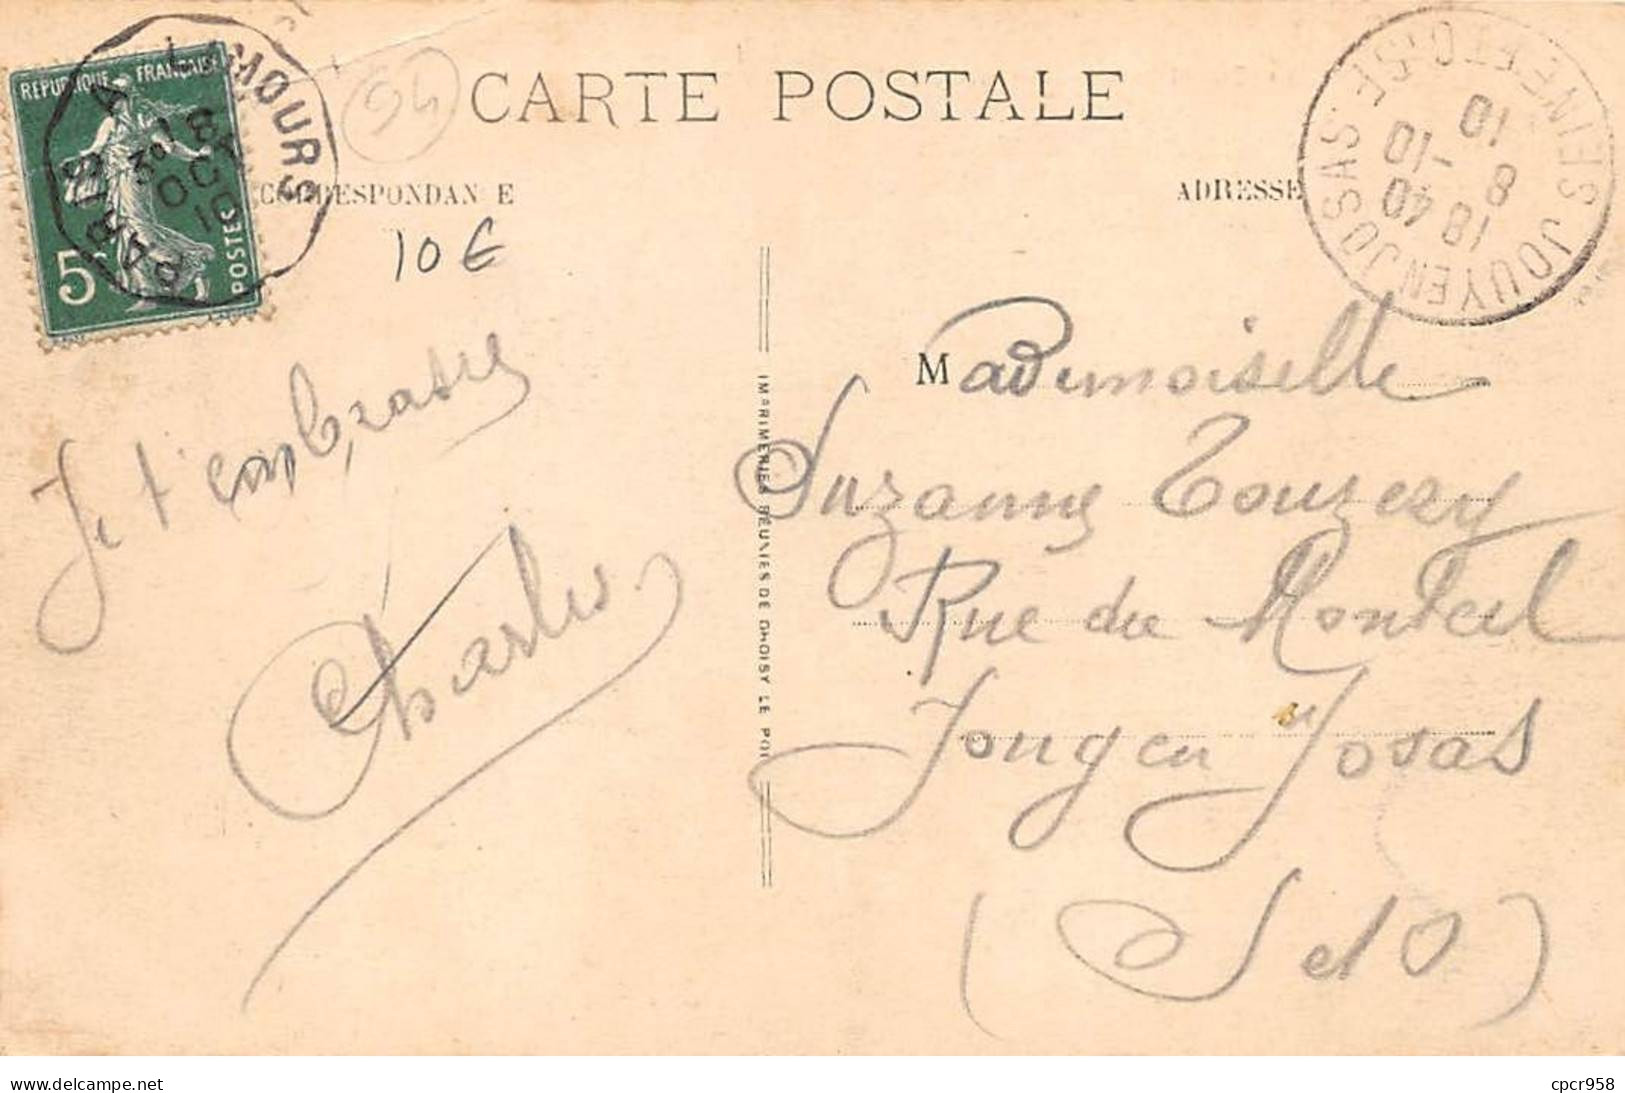 CARTE POSTALE
94
RÉPUBLIQUE FRANÇAISE
5c
POSTES
PARIS A LIMOURS
3º
8
OCT
10
CORRESPONDAN E
ADRESSE
JOUY EN JOSAS SEINE ET OISE
18 40
8 -10
10
10€
Je t'embrasse
Charles
IMPRIMERIES RÉUNIES DE CHOISY LE ROI
Mademoiselle
Suzanne Touzery
Rue du Monteil
Jouy en Josas
(S et O)
cpcr958